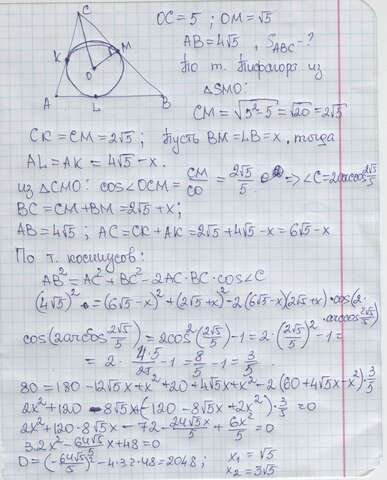 C
K
M
O
A
L
B
OC = 5 ; OM = √5
AB = 4√5 , S_ABC - ?
По т. Пифагора из
△СМО:
CM = √(5² - 5) = √20 = 2√5
CK = CM = 2√5 ; Пусть BM = LB = x, тогда
AL = AK = 4√5 - x.
из △CMO: cos∠OCM = CM/CO = 2√5/5 => ∠C = 2arccos 2√5/5
BC = CM + BM = 2√5 + x;
AB = 4√5 ; AC = CK + AK = 2√5 + 4√5 - x = 6√5 - x
По т. косинусов:
AB² = AC² + BC² - 2AC·BC·cos∠C
(4√5)² = (6√5 - x)² + (2√5 + x)² - 2(6√5 - x)(2√5 + x)·cos(2·arccos 2√5/5)
cos(2arccos 2√5/5) = 2cos²(2√5/5) - 1 = 2·(2√5/5)² - 1 =
= 2 · 4·5/25 - 1 = 8/5 - 1 = 3/5
80 = 180 - 12√5x + x² + 20 + 4√5x + x² - 2(60 + 4√5x - x²)·3/5
2x² + 120 - 8√5x - (120 - 8√5x + 2x²)·3/5 = 0
2x² + 120 - 8√5x - 72 - 24√5x/5 + 6x²/5 = 0
3.2x² - 64√5/5 x + 48 = 0
D = (-64√5/5)² - 4·3.2·48 = 2048 ; x₁ = √5
x₂ = 3√5